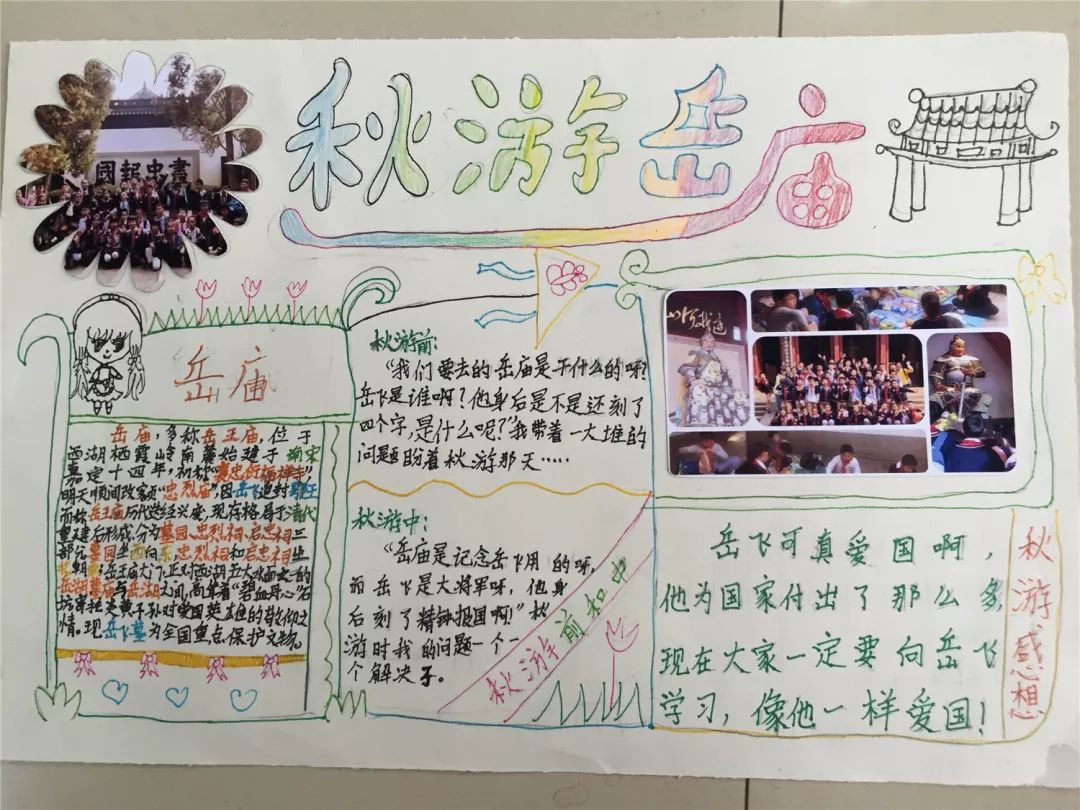 盡忠報國
秋游岳庙
岳庙
岳庙,多称岳王庙,位于
西湖栖霞岭南麓始建于南宋
嘉定十四年,初称"褒忠衍福禅寺"
明天顺间改额"忠烈庙",因岳飞追封鄂王
而称岳王庙历代迭经兴废,现存格局于清代
重建后形成,分为墓园、忠烈祠、启忠祠三
部元墓园坐西向东,忠烈祠和启忠祠坐
北朝南。岳王庙大门,正对西湖五大水面之一的
岳湖墓庙与岳湖之间,高耸着"碧血丹心"石
坊寄托炎黄子孙对爱国英雄的敬仰之
情。现岳飞墓为全国重点保护文物。
秋游前:
"我们要去的岳庙是干什么的呀?
岳飞是谁啊?他身后是不是还刻了
四个字,是什么呢?"我带着一大堆的
问题盼着秋游那天……
秋游中:
"岳庙是记念岳飞用的呀,
而岳飞是大将军呀,他身
后刻了精钟报国啊!"秋
游时我的问题一个一
个解决了。
秋游前和中
岳飞可真爱国啊,
他为国家付出了那么多,
现在大家一定要向岳飞
学习,像他一样爱国!
秋游感想